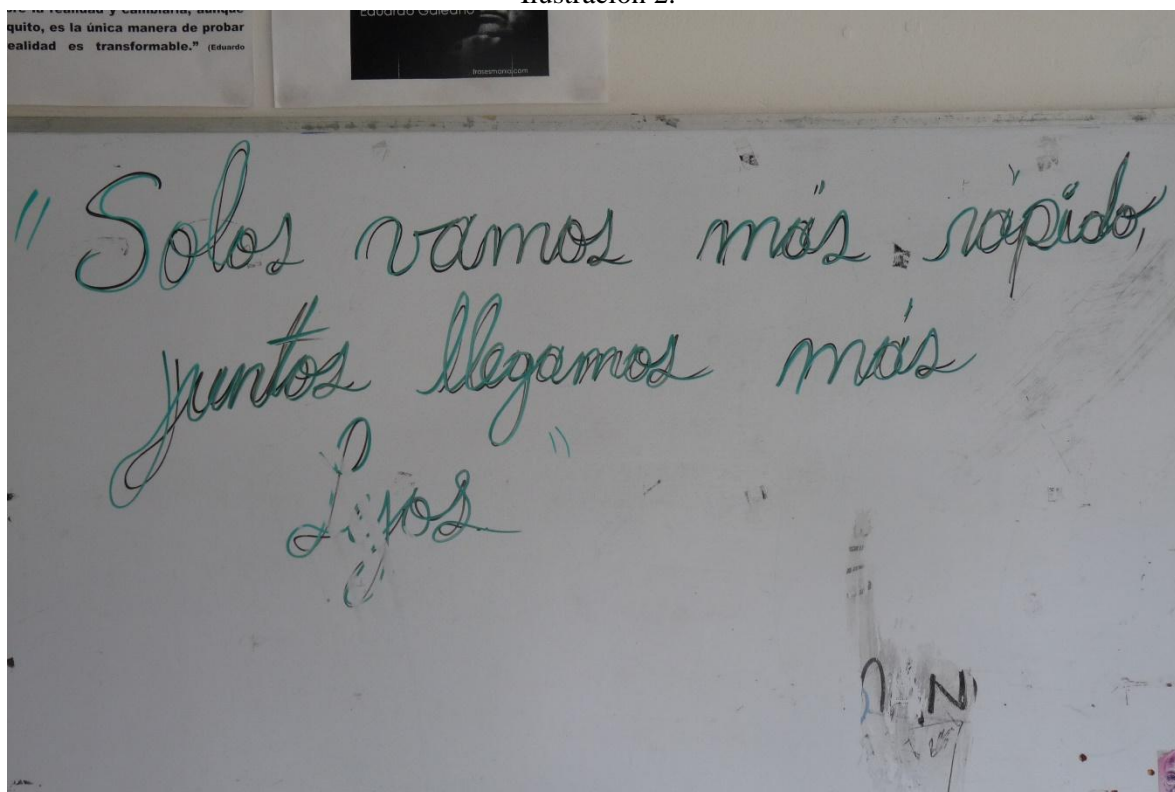 Ilustración 2.
quito, es la única manera de probar
ealidad es transformable.” (Eduardo
Eduardo Galeano
frasesmania.com
" Solos vamos más rápido,
juntos llegamos más
Lejos "
N